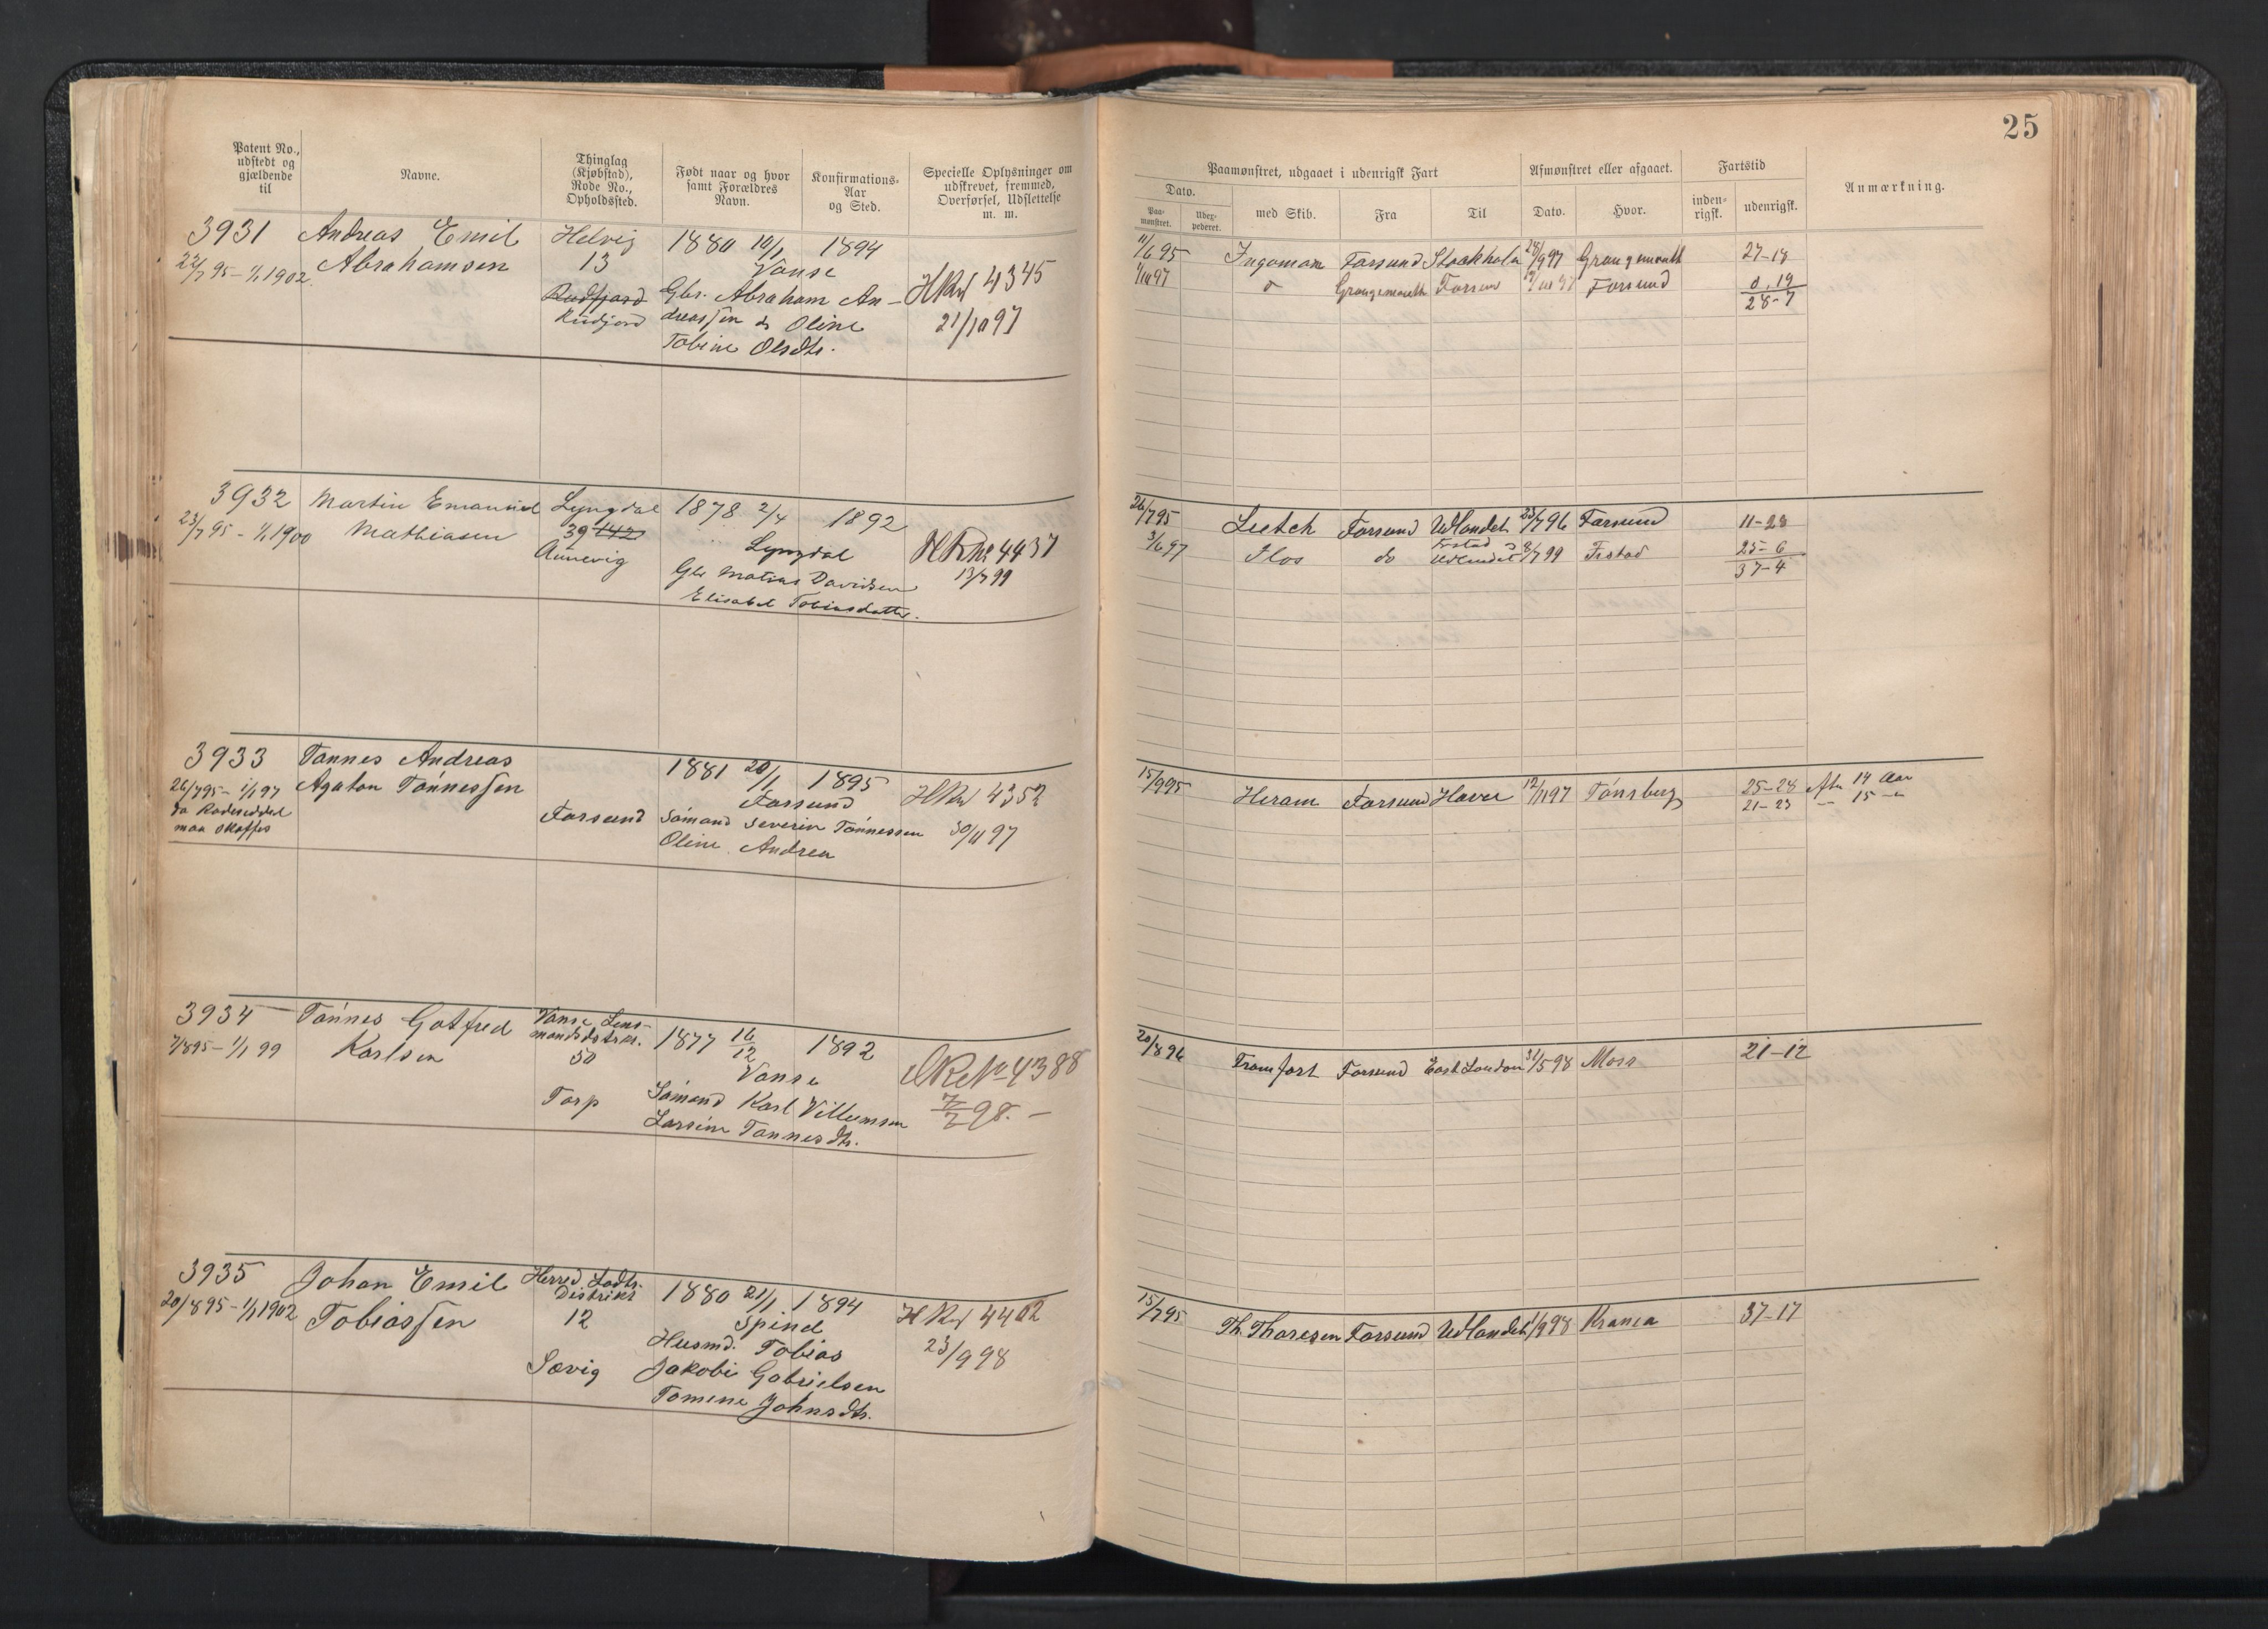 25
Patent No., udstedt og gjældende til
Navne.
Thinglag (Kjøbstad), Rode No., Opholdssted.
Født naar og hvor samt Forældres Navn.
Konfirmations-Aar og Sted.
Specielle Oplysninger om udskrevet, fremmed, Overførsel, Udslettelse m. m.
Paamønstret, udgaaet i udenrigsk Fart
Afmønstret eller afgaaet.
Fartstid
Anmærkning.
Dato.
Paa-mønstret.
Uder-pederet.
med Skib.
Fra
Til
Dato.
Hvor.
inden-rigsk.
udenrigsk.
3931 Andreas Emil Helvig 1880 10/1 1894
22/7 95 - 1/1 1902 Abrahamsen 13 Vanse
Rudfjord Gbr. Abraham An- HRul 4345
Rudjord dreassen & Oline 21/10 97
Tobine Olsdtr.
11/6 95 Ingoman Farsund Stockholm 28/9 97 Grangemouth 27-18
1/10 97 d Grangemouth Farsun 19/10 97 Farsund 0.19
28-7
3932 Martin Emanuel Lyngdal 1878 2/4 1892
23/7 95 - 1/1 1900 Mathiasen 39 142 Lyngdal HRNr 4437
Aunevig Gbr Matias Davidsen 13/7 99
Elisabet Tobiasdatter.
26/7 95 Leetch Farsund Udlandet 23/7 96 Farsund 11-28
3/6 97 Flos do Frstad Udlandet 8/7 99 Frstad 25-6
37-4
3933 Tønnes Andreas 1881 20/1 1895
26/7 95 - 1/1 97 Agaton Tønnessen Farsund HRul 4352
maa skaffes Farsund Sømand Severin Tønnessen 30/11 97
Oline Andrea
15/9 95 Hiram Farsund Havre 12/11 97 Tønsberg 25-28 14 Aar
21-23 15
3934 Tønnes Gotfred Vanse Lens-
mandsdistr. 1877 16/12 1892
7/8 95 - 1/1 99 Karlsen 50 Vanse 4388
Torp Sømand Karl Villumsen 7/7 98.-
Larsine Tønnesdtr.
20/8 96 Framfart Farsund East London 31/5 98 Moss 21-12
3935 Johan Emil Herred
Distrikt 1880 21/1 1894
20/8 95 - 1/1 1902 Tobiassen 12 Spind HRul 4402
Husmd. Tobias 23/9 98
Sævig Jakobi Gabrielsen
Tomine Johnsdtr.
15/7 95 Th. Thoresen Farsund Udlandet 1/9 98 37-17